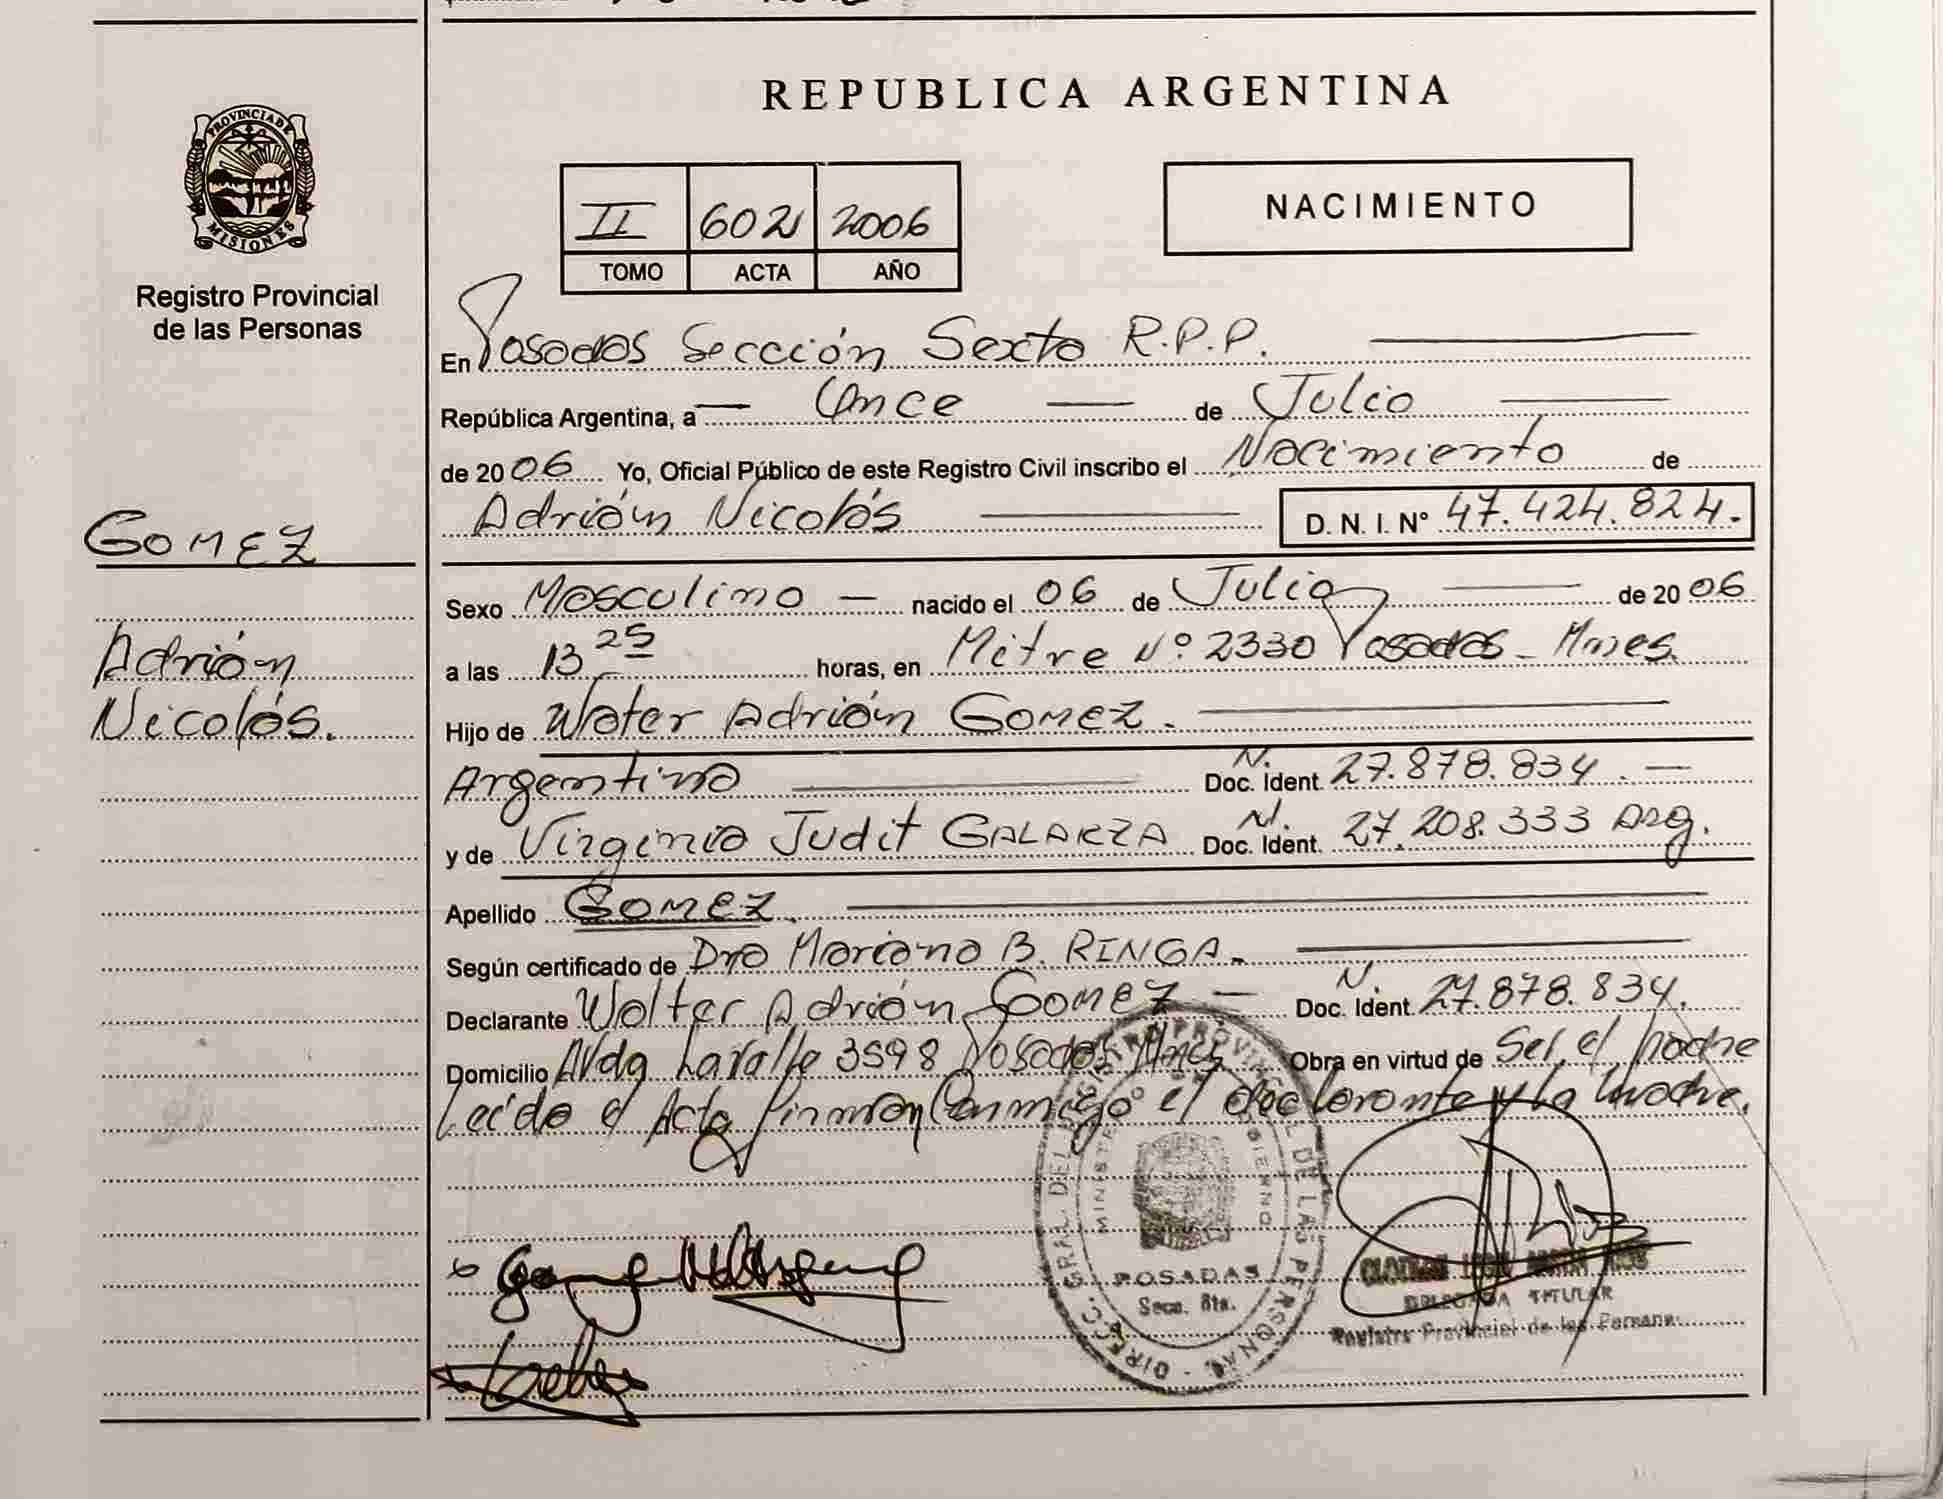 PROVINCIA DE
MISIONES
Registro Provincial
de las Personas
GOMEZ
Adrián
Nicolás.
REPUBLICA ARGENTINA
II 602 2006
TOMO ACTA AÑO
NACIMIENTO
En Posadas Sección Sexta R.P.P.
República Argentina, a Once de Julio
de 2006 Yo, Oficial Público de este Registro Civil inscribo el Nacimiento de
Adrián Nicolás D. N. I. Nº 47.424.824.
Sexo Masculino nacido el 06 de Julio de 2006
a las 13 25 horas, en Mitre Nº 2330 Posadas - Mnes.
Hijo de Walter Adrián GOMEZ.
Argentino N. Doc. Ident. 27.878.834.
y de Virginia Judit GALARZA N. Doc. Ident. 27.208.333 Arg.
Apellido GOMEZ.
Según certificado de Dra Mariana B. RINGA.
Declarante Walter Adrián GOMEZ N. Doc. Ident. 27.878.834.
Domicilio Avda Lavalle 3598 Posadas Mnes Obra en virtud de Ser el Padre
Leído el Acta firman Conmigo el declarante y la Madre.
DIREC. GRAL. DEL REGISTRO PROVINCIAL DE LAS PERSONAS
MINISTERIO DE GOBIERNO
POSADAS
Secc. 6ta.
DELEGADA TITULAR
Registro Provincial de las Personas